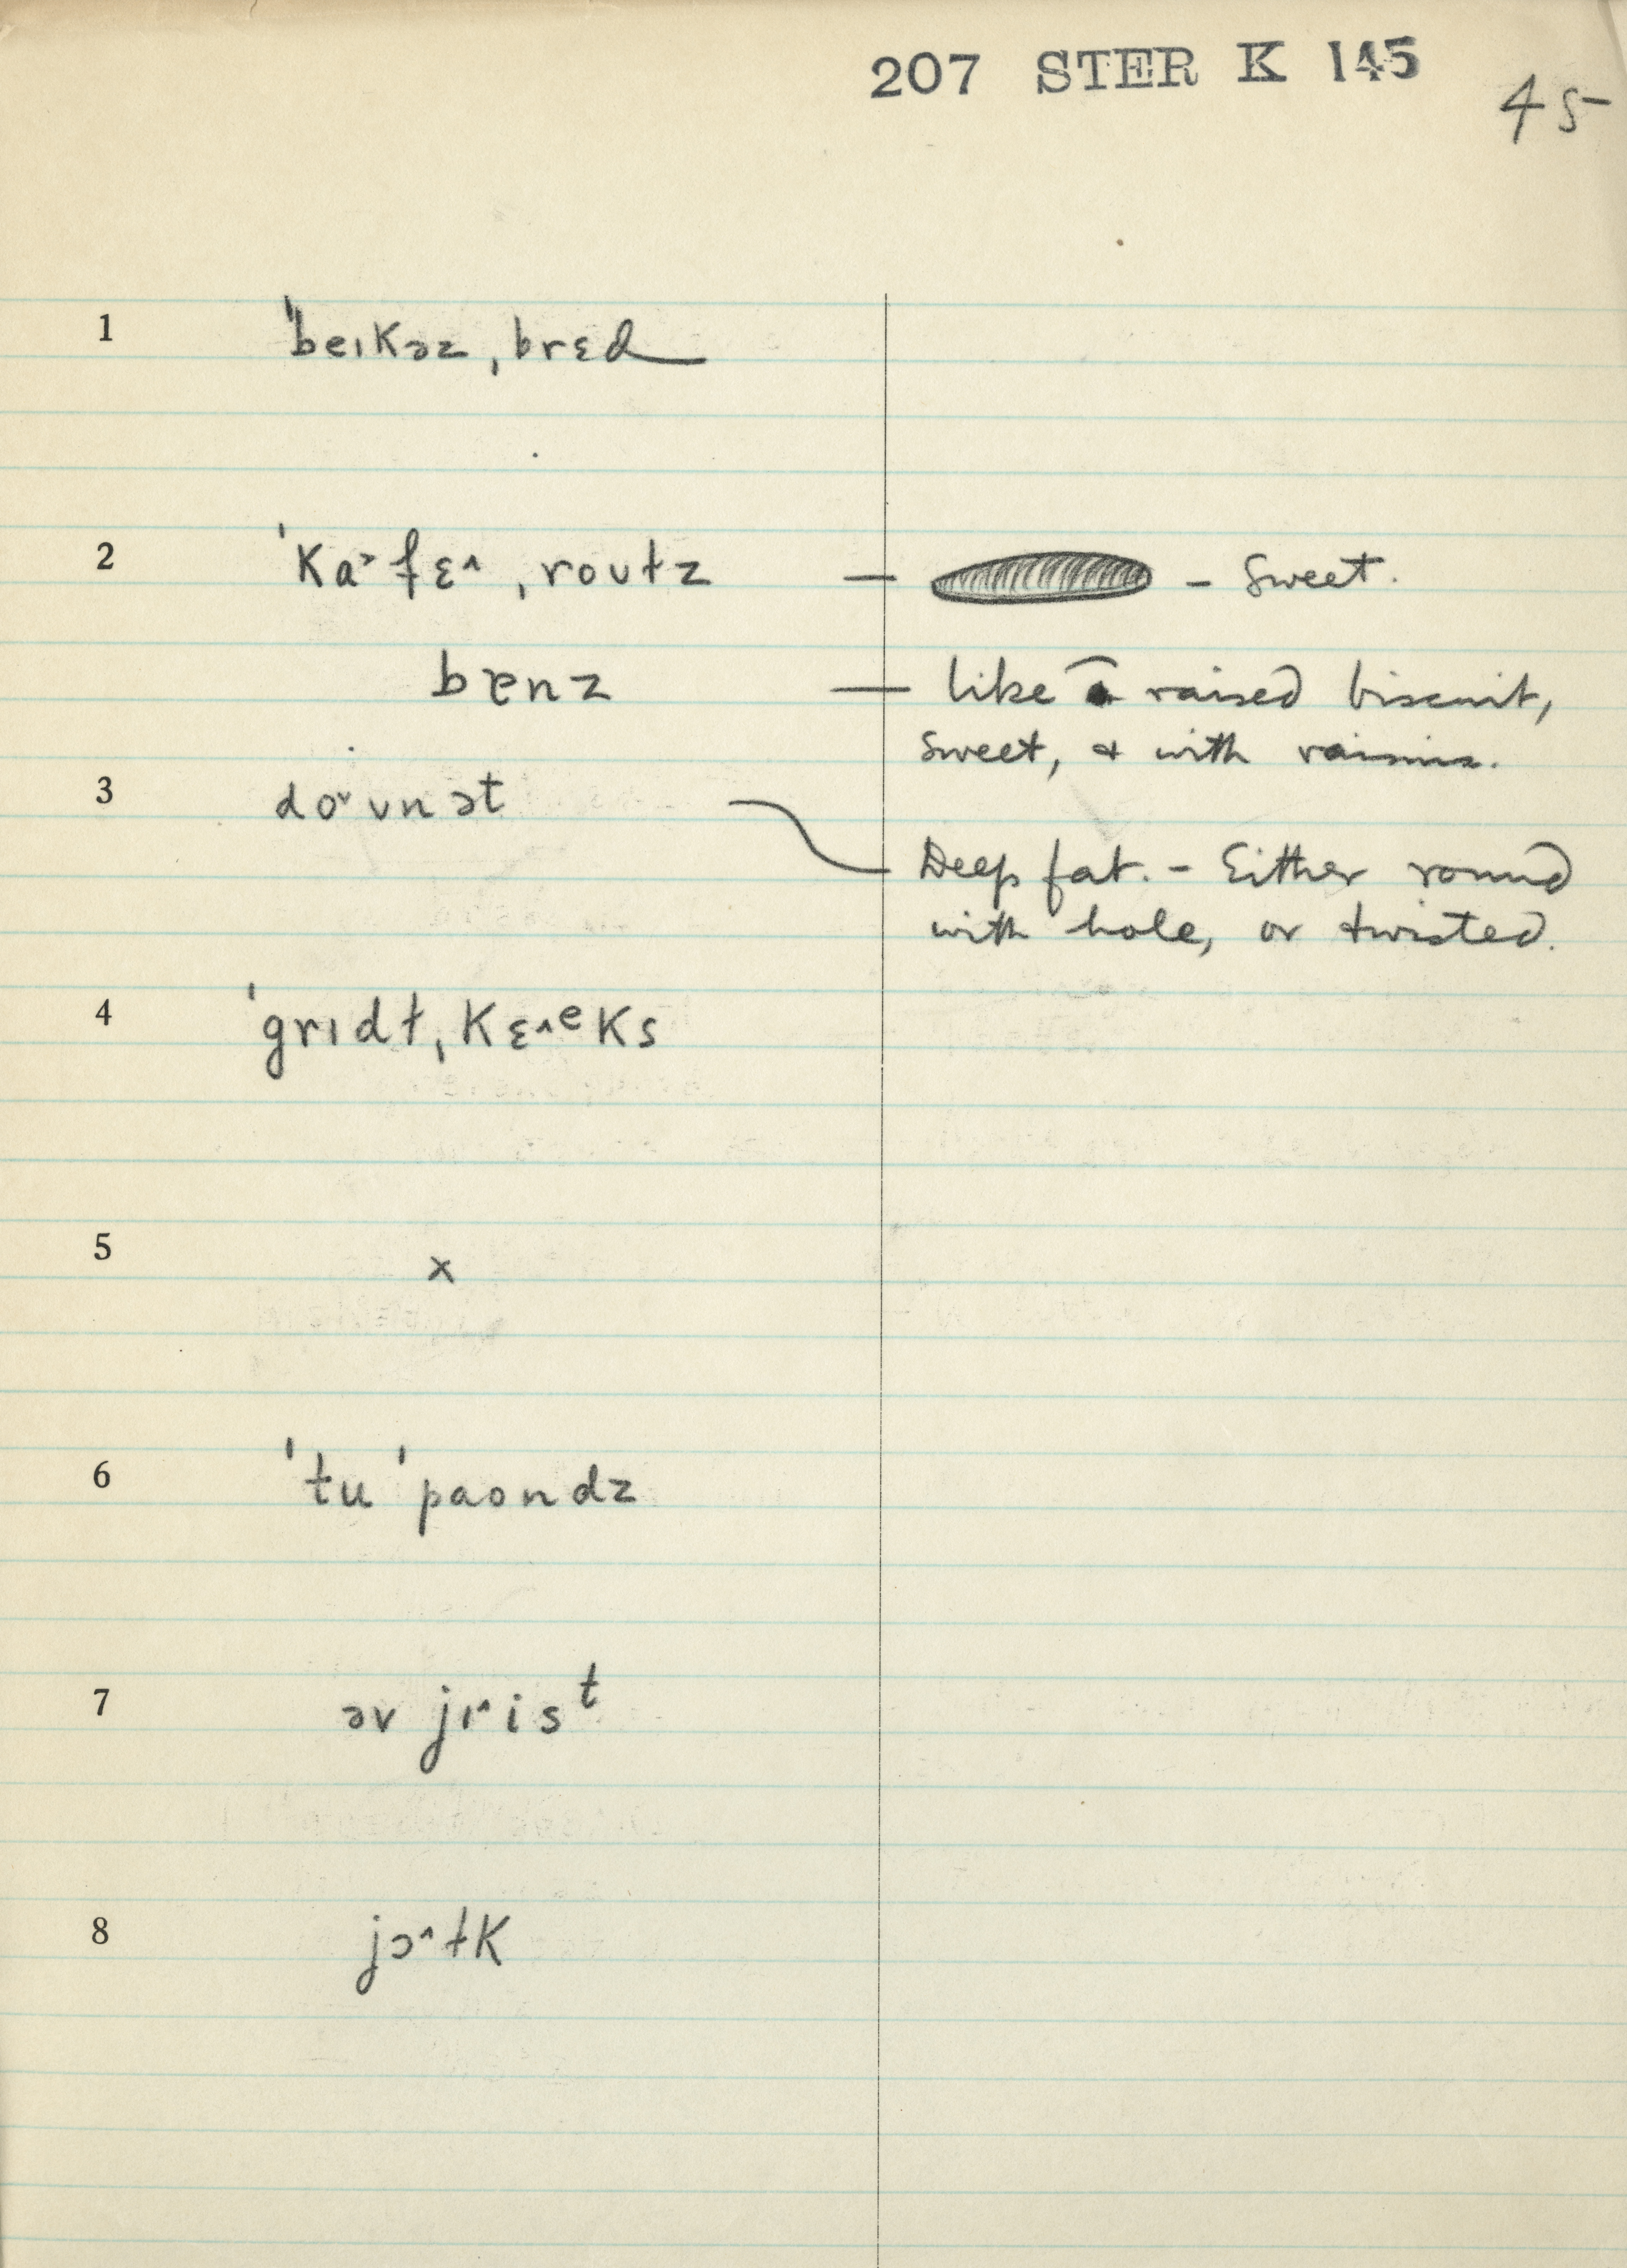 207 STER K 145
45
1 ˈbeɪkəz ˌbrɛd
2 ˈka˃fɛ˄ ˌroʊɫz — – Sweet.
bɐnz — like a raised biscuit,
sweet, & with raisins.
3 do˅ʊnət
Deep fat. – Either round
with hole, or twisted.
4 ˈgrɪdɫ ˌkɛ˄ᵉks
5 x
6 ˈtu ˈpaʊndz
7 əv jɪ˄isᵗ
8 jɔ˄ɫk